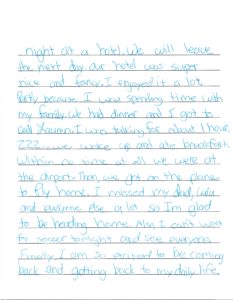 night at a hotel. We will leave
the next day our hotel was super
nice and fancy. I enjoyed it a lot.
Partly because I was spending time with
my family. We had dinner and I got to
call Lauren. I was talking for about 1 hour.
ZZZ... we woke up and ate breakfast.
Within no time at all we were at
the airport. Then, we got on the plane
to fly home. I missed my dad, Lulu
and everyone else a lot so Im glad
to be heading home. Also, I can't wait
for soccer tonight and see everyone.
Finally I am so excited to be coming
back and getting back to my daily life.